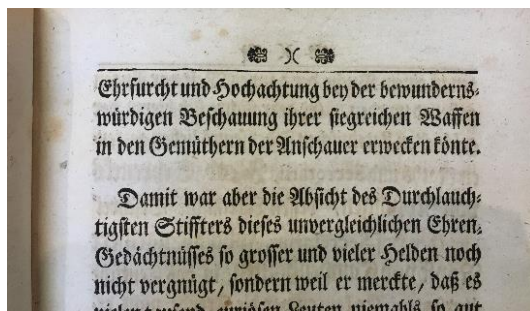 Ehrfurcht und Hochachtung bey der bewunderns-
würdigen Beschauung ihrer siegreichen Waffen
in den Gemüthern der Anschauer erwecken könte.
Damit war aber die Absicht des Durchlauch-
tigsten Stiffters dieses unvergleichlichen Ehren-
Gedächtnüsses so grosser und vieler Helden noch
nicht vergnügt, sondern weil er merckte, daß es
vielen tausend curiösen Leuten niemahls so gut